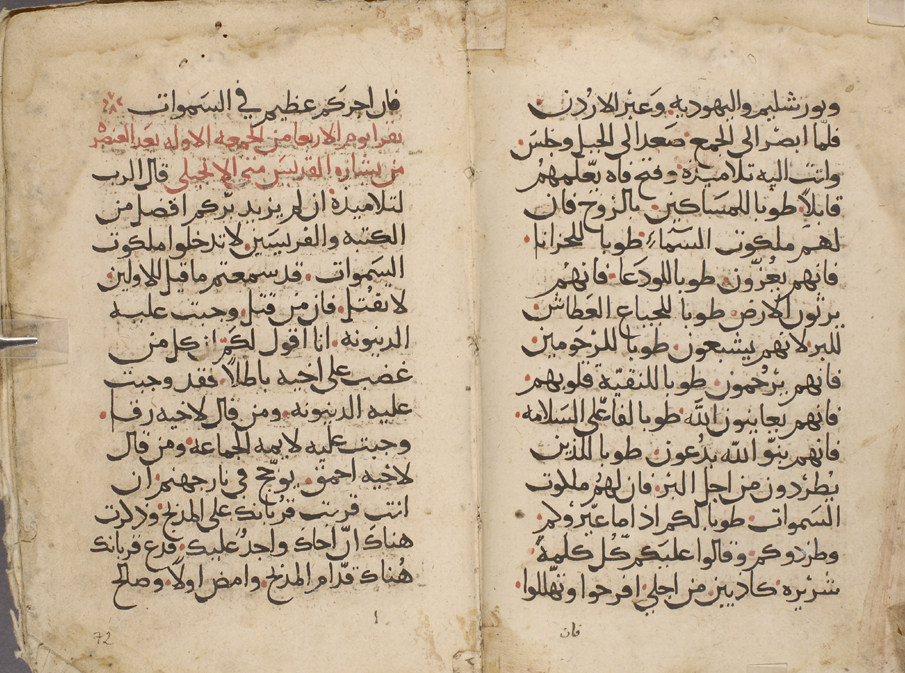 ويورشليم واليهوديه وعبر الاردن
فلما ابصر الى الجمع صعد الى الجبل وجلس
واتت اليه تلاميذه وفتح فاه يعلمهم
قايلاً طوبا للمساكين بالروح فان
لهم ملكوت السماء طوبا للحزانا
فانهم يعزون طوبا للودعا فانهم
يرثون الارض طوبا للجياع العطاش
للبر لانهم يشبعون طوبا للرحومين
فانهم يرحمون طوبا للنقية قلوبهم
فانهم يعاينون الله طوبا لفاعلى السلامه
فانهم بنو الله يدعون طوبا للذين
يطردون من اجل البر فان لهم ملكوت
السموات طوبا لكم اذا ما عيروكم
وطردوكم وقالوا عليكم كل كلمة
شريره كاذبين من اجلي افرحوا وتهللوا
فان
فان اجركم عظيم في السموات
يقرا يوم الاربعا من الجمعه الاوله بعد العنصره
من بشاره القديس متى الانجيلى قال الرب
لتلاميذه ان لم يزيد بركم افضل من
الكتبه والفريسيين لا تدخلوا ملكوت
السموات قد سمعتم ما قيل للاولين
لا تقتل فان من قتل وجبت عليه
الدينونه انا اقول لكم ان كل من
غضب على اخيه باطلاً فقد وجبت
عليه الدينونه ومن قال لاخيه رقا
وجبت عليه لايمه الجماعه ومن قال
لاخيه احمق يوجج في نار جهنم ان
انت قربت قربانك على المذبح وذكرت
هناك ان اخاك واجد عليك فدع قربانك
هناك قدام المذبح وامض اولاً وصالح
72